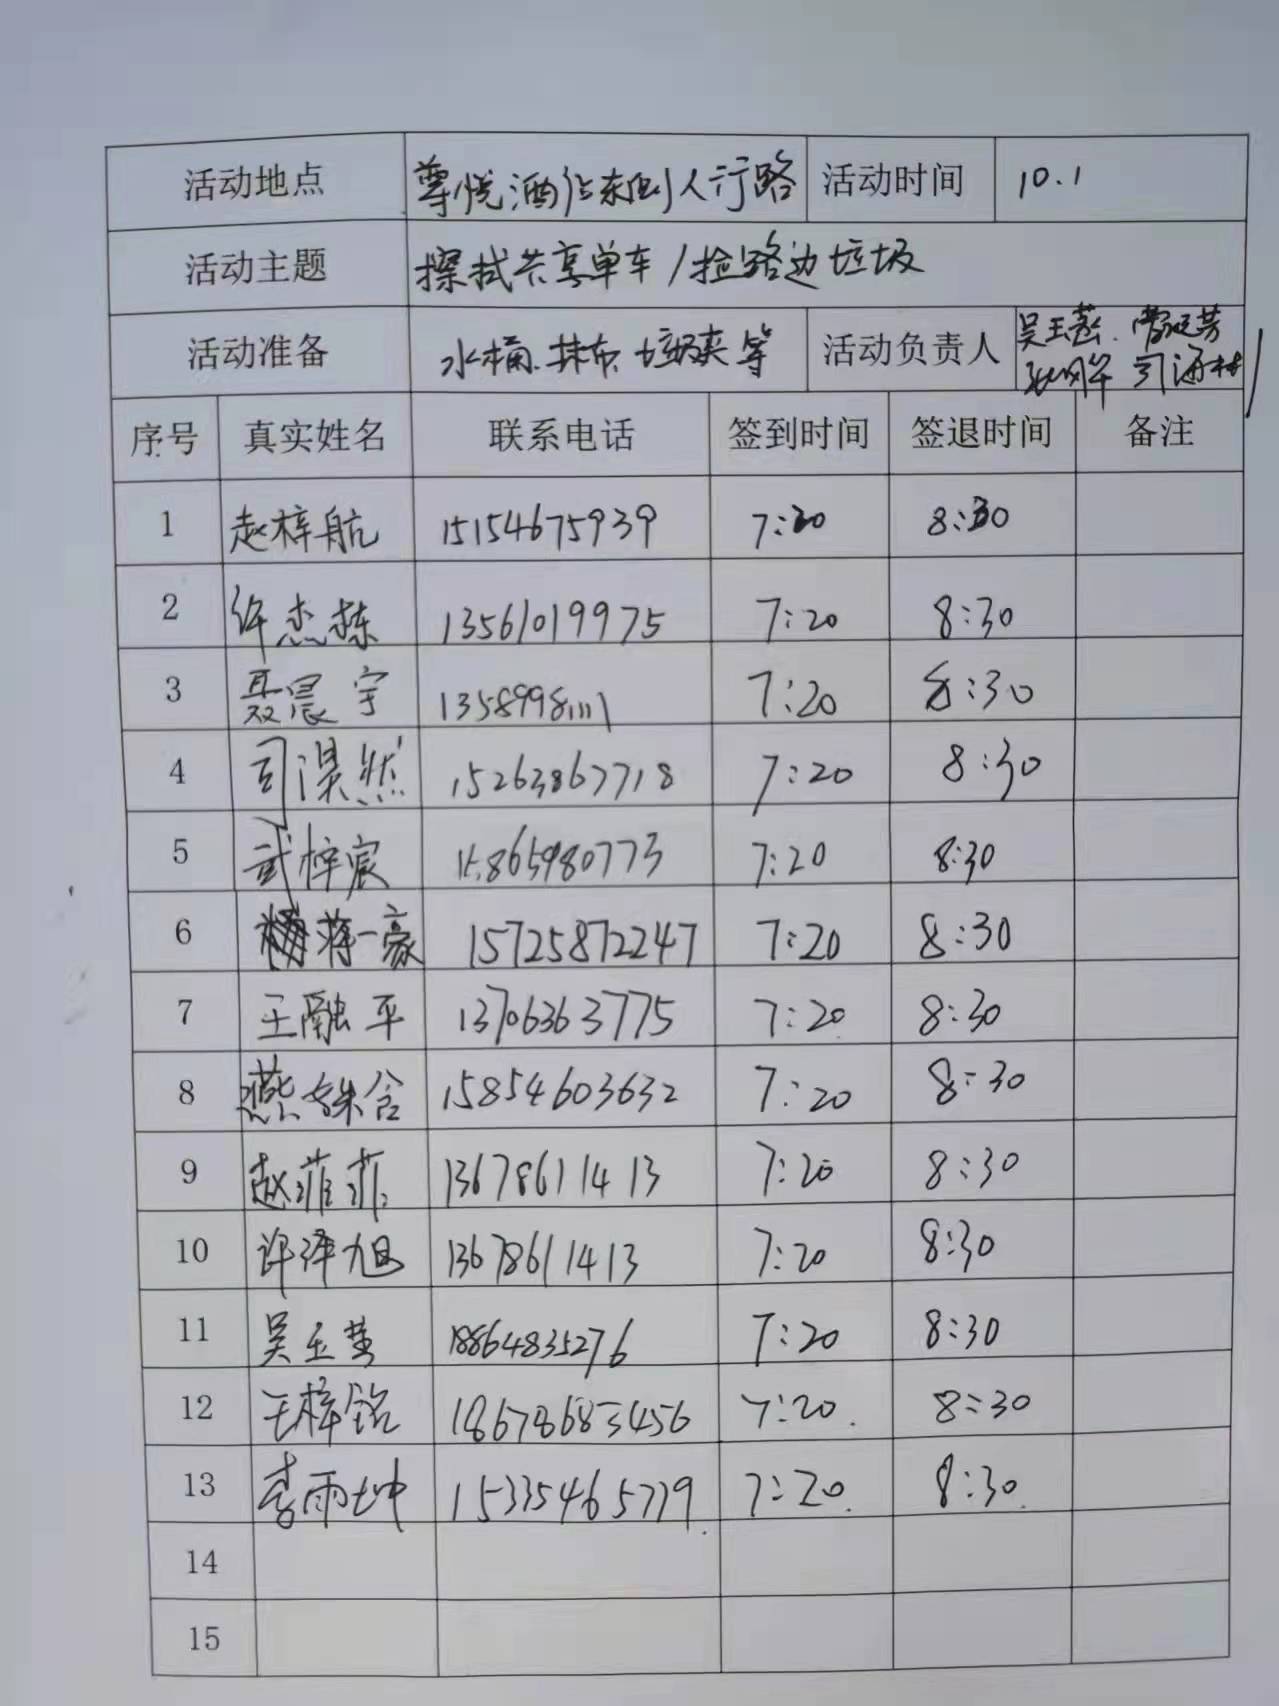 活动地点 尊悦酒店东侧人行路 活动时间 10.1
活动主题 擦拭共享单车/捡路边垃圾
活动准备 水桶、抹布、垃圾夹等 活动负责人 吴玉
序号 真实姓名 联系电话 签到时间 签退时间 备注
1 赵梓航 15154675939 7:20 8:30
2 许杰栋 13561019975 7:20 8:30
3 聂晨宇 13589981111 7:20 8:30
4 司淏然 15263867718 7:20 8:30
5 武梓宸 15865980773 7:20 8:30
6 蒋一豪 15725872247 7:20 8:30
7 王融平 13706363775 7:20 8:30
8 燕姝含 15854603632 7:20 8:30
9 赵菲菲 13678611413 7:20 8:30
10 许泽旭 13678611413 7:20 8:30
11 吴玉 18864835276 7:20 8:30
12 王梓铭 18678683456 7:20 8:30
13 李雨坤 15335465779 7:20 8:30
14
15